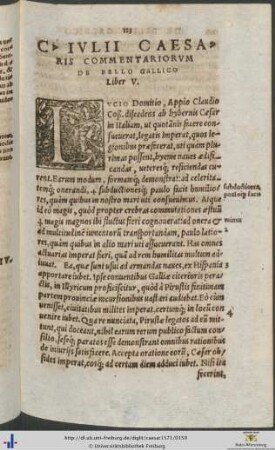 113
C. IVLII CAESA-
RIS COMMENTARIORVM
DE BELLO GALLICO
Liber V.
LVCIO Domitio, Appio Claudio
Coß. discedens ab hybernis Cæsar
in Italiam, ut quotánis facere con-
sueuerat, legatis imperat, quos le-
gionibus præfecerat, uti quàm plu-
rimas possent, hyeme naues ædifi-
candas, ueterésq; reficiendas cu-
rent. Earum modum, formámq; demonstrat: ad celerita-
tem onerandi,
subductionesq; paulo facit humilio-
res, quàm quibus in nostro mari uti consueuimus. Atque
id eò magis, quòd propter crebras commutationes æstuũ
magnos ibi fluctus fieri cognouerat: ad onera
ad multitudinẽ iumentorũ transportandam, paulo latio-
res, quàm quibus in alio mari uti assueuerant. Has omnes
actuarias imperat fieri, quã ad rem humilitas multum ad-
iuuat. Ea, quæ sunt usui ad armandas naues, ex Hispania
apportare iubet. Ipse conuentibus Galliæ citerioris perac-
tis, in Illyricum proficiscitur, quòd à Pirustis finitimam
partem prouinciæ incursionibus uastari audiebat. Eò cùm
uenisset, ciuitatibus milites imperat, certúmq; in locũ con-
uenire iubet. Qua re nunciata, Pirustæ legatos ad eũ mit-
tunt, qui doceant, nihil earum rerum publico factum con-
silio, seséq; paratos esse demonstrant omnibus rationibus
de iniurijs satisfacere. Accepta oratione eorũ, Cæsar obsi-
des imperat, eósq; ad certam diem adduci iubet. Nisi ita
fecerint,
subductiones,
minus
http://dl.ub.uni-freiburg.de/diglit/caesar1571/0159
© Universitätsbibliothek Freiburg